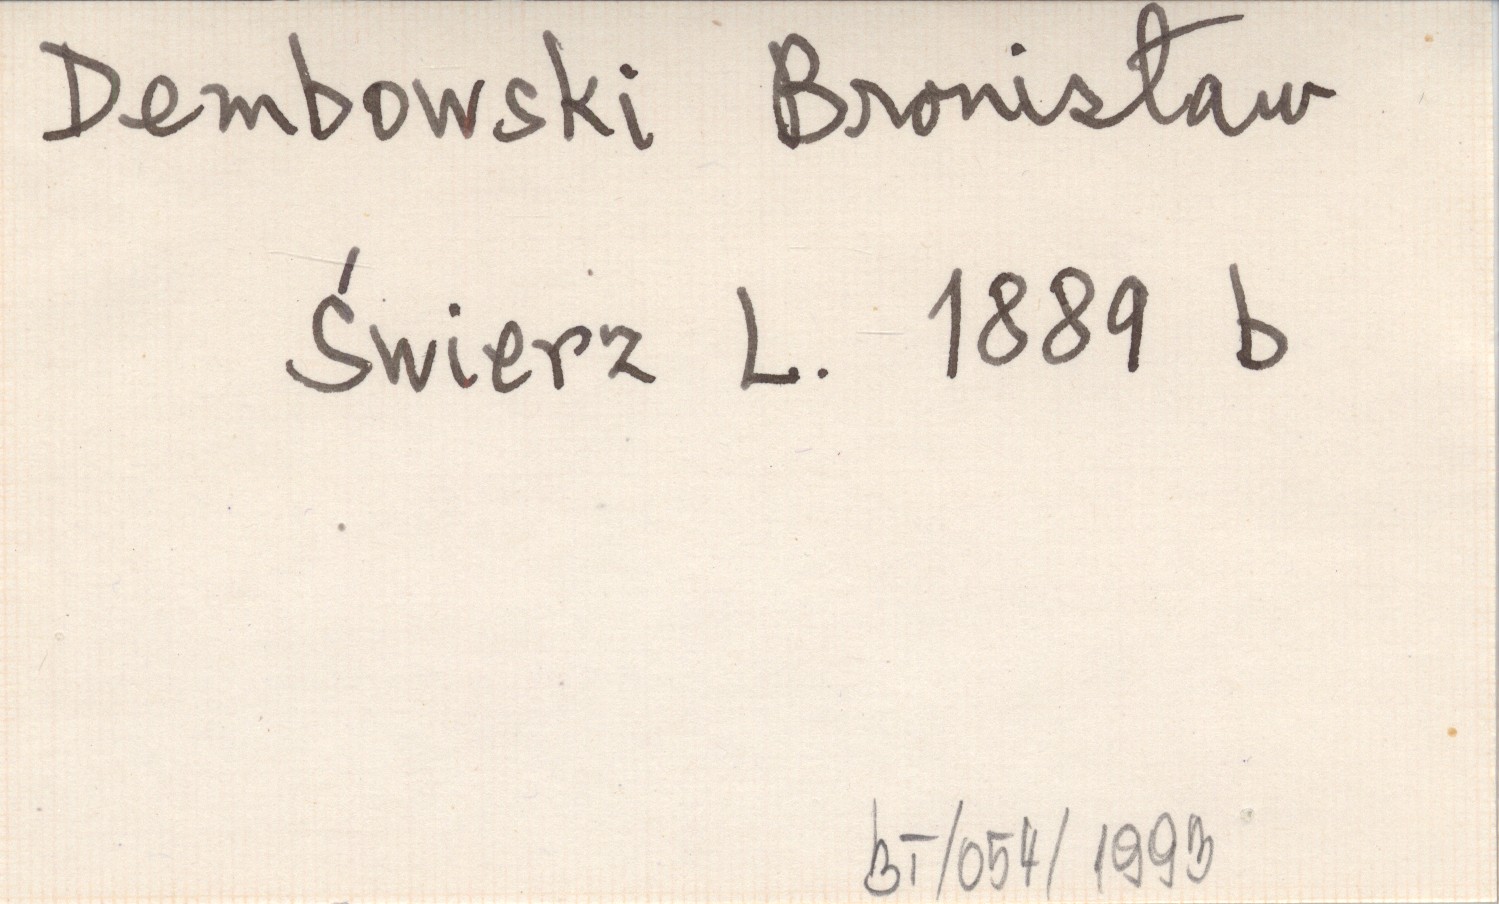 Dembowski Bronisław
Świerz L. 1889 b
bT/054/1993